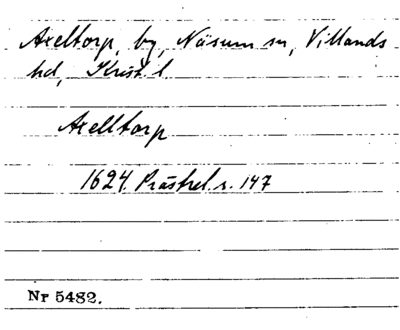 Axeltorp, by, Näsum sn, Villands
hd, Krist. l.
Axelltorp
1624. Prästrel. s. 147
Nr 5482.